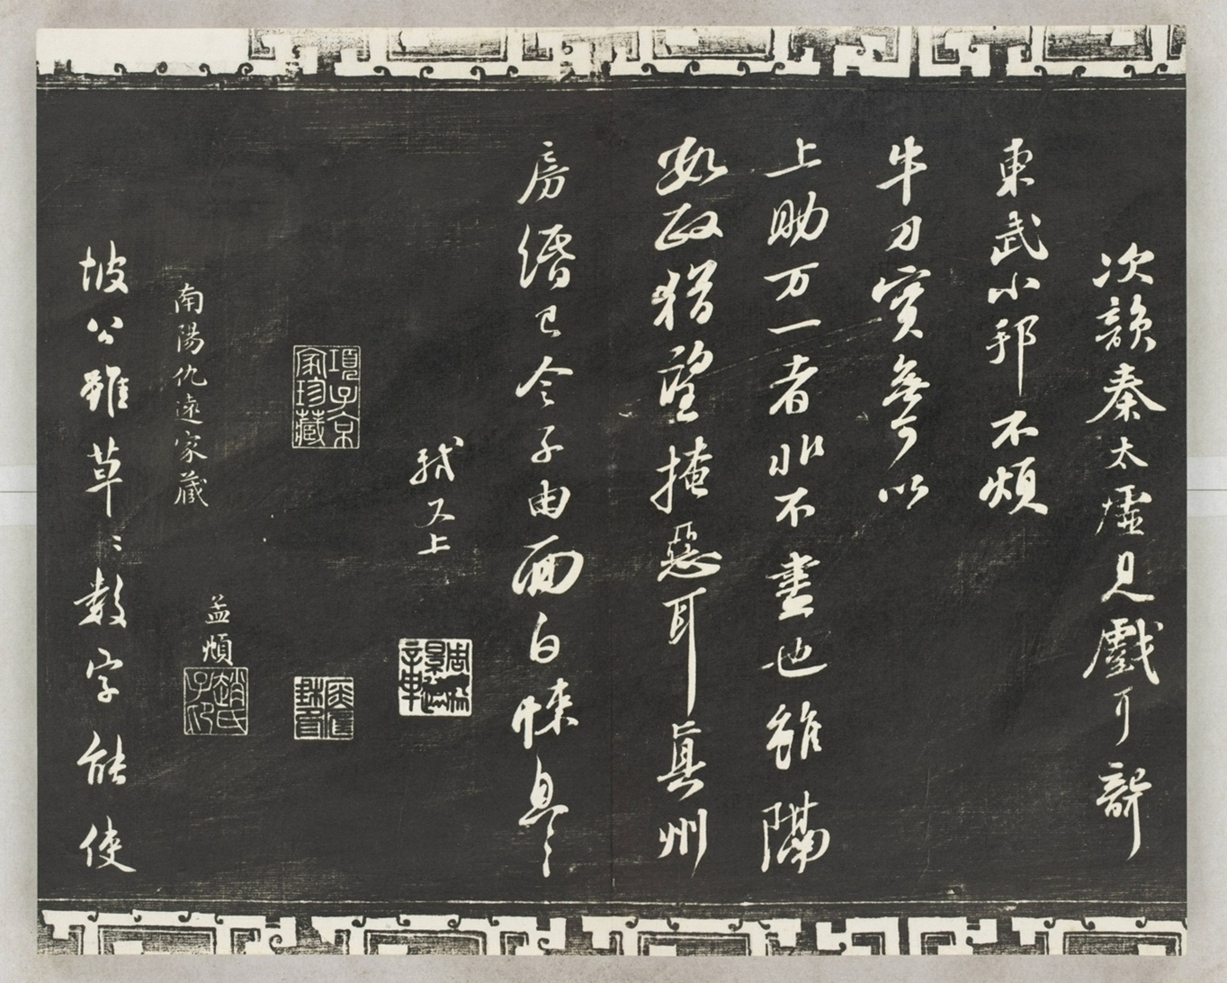 次韻秦太虛見戲耳聾
東武小邦不煩
牛刀實無可以
上助万一者非不盡也雖隔
數政猶望掩惡耳真州
房緡已令子由面白悚息〻
軾又上
項子京家珍藏
南陽仇遠家藏
孟頫
趙氏子昂
坡公雖草〻數字能使